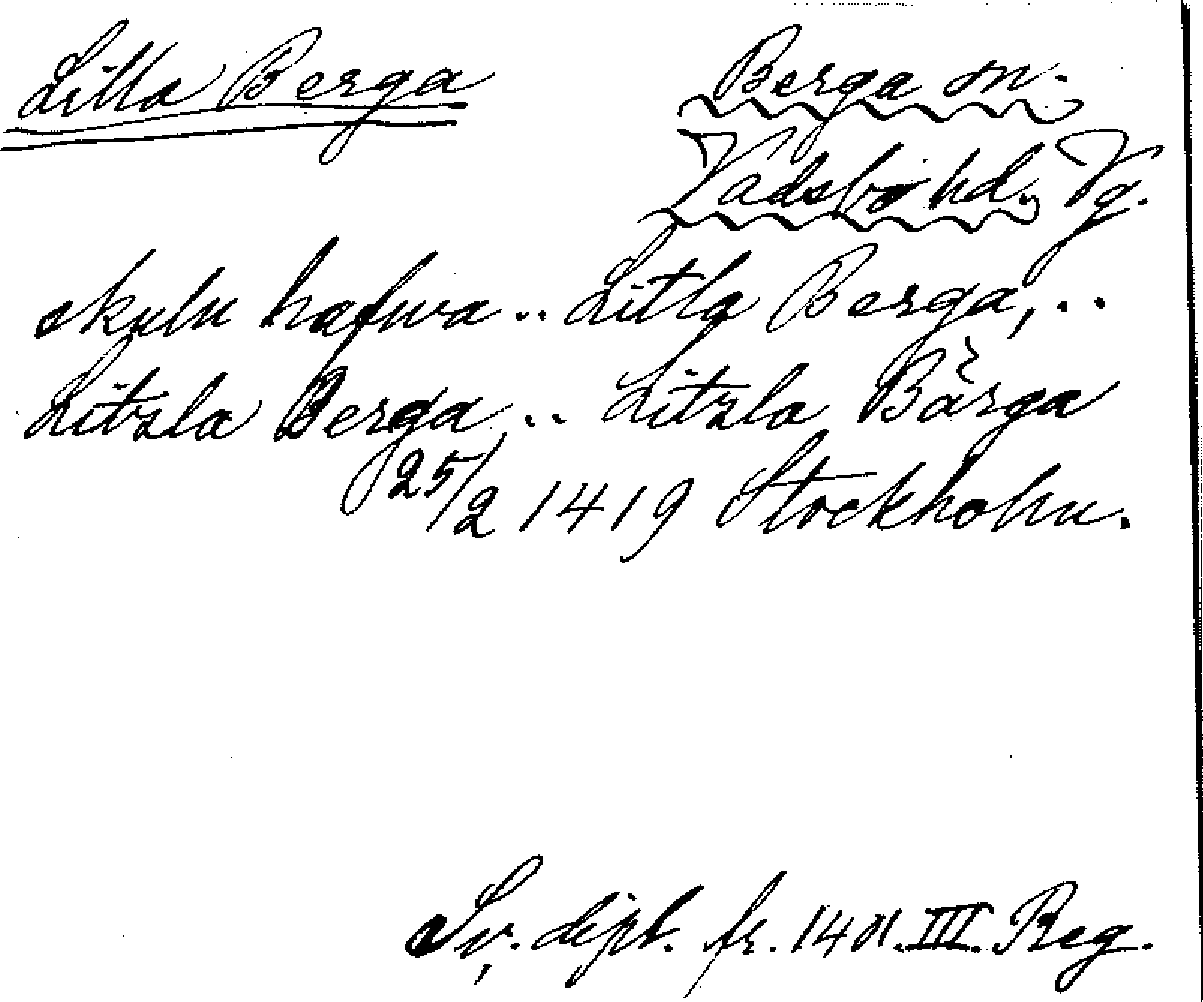 Lilla Berga
Berga sn.
Vadsbo hd. Vg.
skulu hafwa .. Litla Berga, ..
Litzsla Berga .. Litzla Bärga
25/2 1419 Stockholm.
Sv. dipl. fr. 1401. III. Reg.